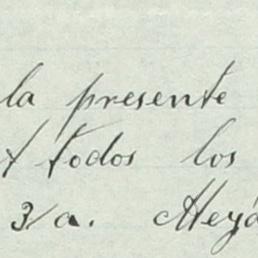 la presente
todos los
3/a.